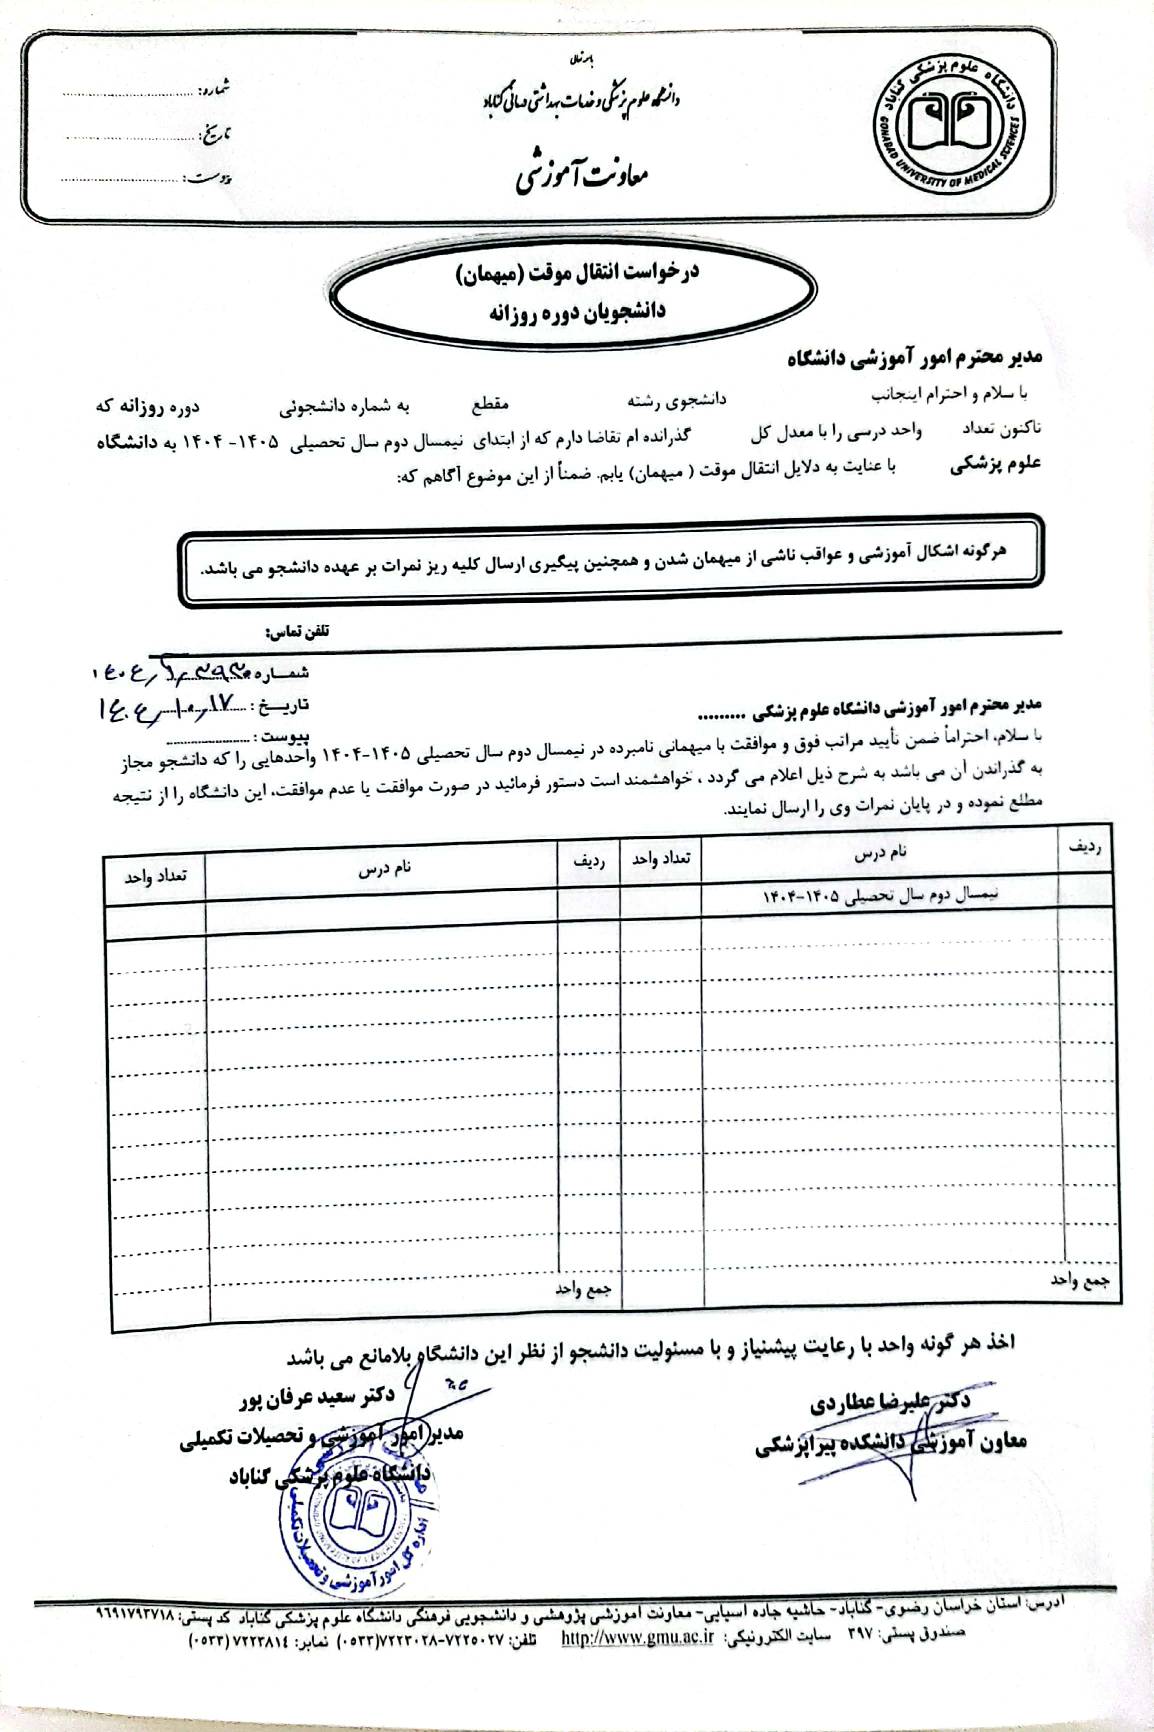 باسمه تعالی
دانشگاه علوم پزشکی و خدمات بهداشتی درمانی گناباد
معاونت آموزشی
شماره:
تاریخ:
پیوست:
دانشگاه علوم پزشکی گناباد
GONABAD UNIVERSITY OF MEDICAL SCIENCES
درخواست انتقال موقت (میهمان)
دانشجویان دوره روزانه
مدیر محترم امور آموزشی دانشگاه
با سلام و احترام اینجانب دانشجوی رشته مقطع به شماره دانشجوئی دوره روزانه که
تاکنون تعداد واحد درسی را با معدل کل گذرانده ام تقاضا دارم که از ابتدای نیمسال دوم سال تحصیلی ۱۴۰۵- ۱۴۰۴ به دانشگاه
علوم پزشکی با عنایت به دلایل انتقال موقت ( میهمان) یابم. ضمناً از این موضوع آگاهم که:
هرگونه اشکال آموزشی و عواقب ناشی از میهمان شدن و همچنین پیگیری ارسال کلیه ریز نمرات بر عهده دانشجو می باشد.
تلفن تماس:
شماره
تاریخ : ۱۴۰۴٫۱۰٫۱۷
پیوست :
مدیر محترم امور آموزشی دانشگاه علوم پزشکی .........
با سلام، احتراماً ضمن تأیید مراتب فوق و موافقت با میهمانی نامبرده در نیمسال دوم سال تحصیلی ۱۴۰۵-۱۴۰۴ واحدهایی را که دانشجو مجاز
به گذراندن آن می باشد به شرح ذیل اعلام می گردد ، خواهشمند است دستور فرمائید در صورت موافقت یا عدم موافقت، این دانشگاه را از نتیجه
مطلع نموده و در پایان نمرات وی را ارسال نمایند.
ردیف نام درس تعداد واحد ردیف نام درس تعداد واحد
نیمسال دوم سال تحصیلی ۱۴۰۵-۱۴۰۴
جمع واحد جمع واحد
اخذ هر گونه واحد با رعایت پیشنیاز و با مسئولیت دانشجو از نظر این دانشگاه بلامانع می باشد
دکتر علیرضا عطاردی
معاون آموزشی دانشکده پیراپزشکی
دکتر سعید عرفان پور
مدیر امور آموزشی و تحصیلات تکمیلی
دانشگاه علوم پزشکی گناباد
اداره کل امور آموزشی و تحصیلات تکمیلی
آدرس: استان خراسان رضوی- گناباد- حاشیه جاده آسیایی- معاونت آموزشی پژوهشی و دانشجویی فرهنگی دانشگاه علوم پزشکی گناباد کد پستی: ۹۶۹۱۷۹۳۷۱۸
صندوق پستی: ۳۹۷ سایت الکترونیکی: http://www.gmu.ac.ir تلفن: ۷۲۲۵۰۲۷-۷۲۲۳۰۲۸(۰۵۳۳) نمابر: ۷۲۲۳۸۱۴ (۰۵۳۳)